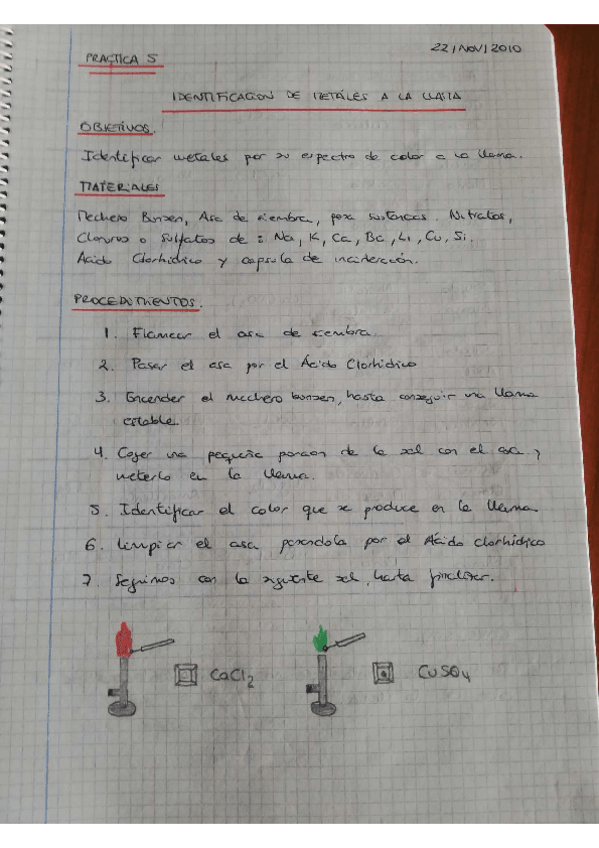 PRACTICA 5
22/NOV/2010
IDENTIFICACION DE METALES A LA LLAMA
OBJETIVOS.
Identificar metales por su espectro de color a la llama.
MATERIALES
Mechero Bunsen, Asa de siembra, porta sustancias. Nitratos,
Cloruros o Sulfatos de : Na, K, Ca, Ba, Li, Cu, Si.
Acido Clorhidico y capsula de incideración.
PROCEDIMIENTOS.
1. Flamear el asa de siembra.
2. Pasar el asa por el Ácido Clorhidico
3. Encender el mechero bunsen, hasta conseguir una llama
estable.
4. Coger una pequeña porcion de la sal con el asa y
meterlo en la llama.
5. Identificar el color que se produce en la llama
6. limpiar el asa pasandola por el Ácido clorhidico
7. Seguimos con la siguiente sal, hasta finalizar.
CaCl₂ CuSO₄